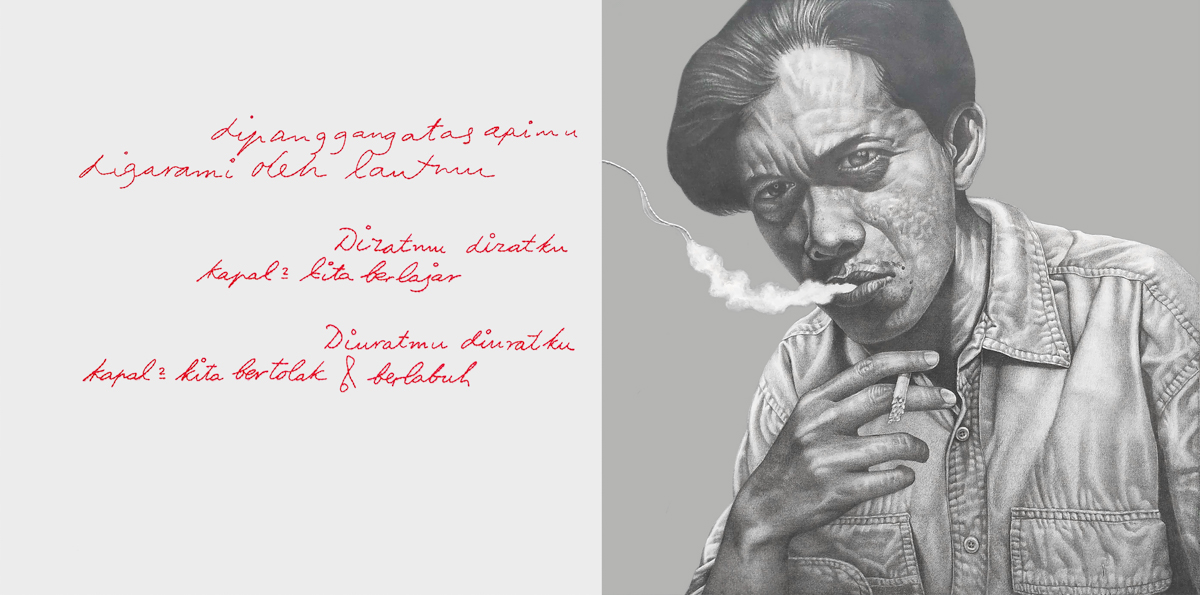 dipanggangatas apimu
digarami oleh lautmu
Dizatmu dizatku
kapal² kita berlajar
Diuratmu diuratku
kapal² kita bertolak & berlabuh